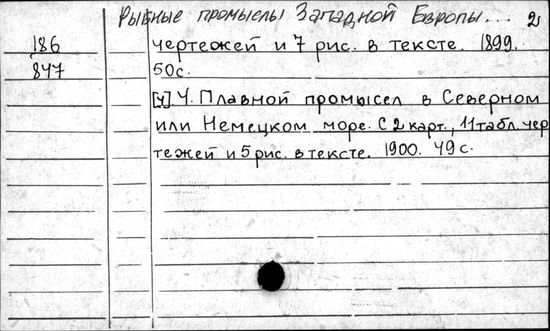 Рыбные промыслы Западной Европы... 2
186
847
чертежей и 7 рис. в тексте. 1899.
50с.
[ч] 4. Плавной промысел в Северном
или Немецком море. С 2 карт., 11 табл. чер
тежей и 5 рис. в тексте. 1900. 49 с.